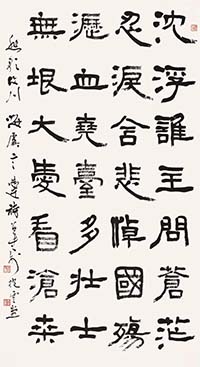 沈浮誰主問蒼茫
忍淚含悲悼國殤
瀝血堯臺多壯士
無垠大愛看滄桒